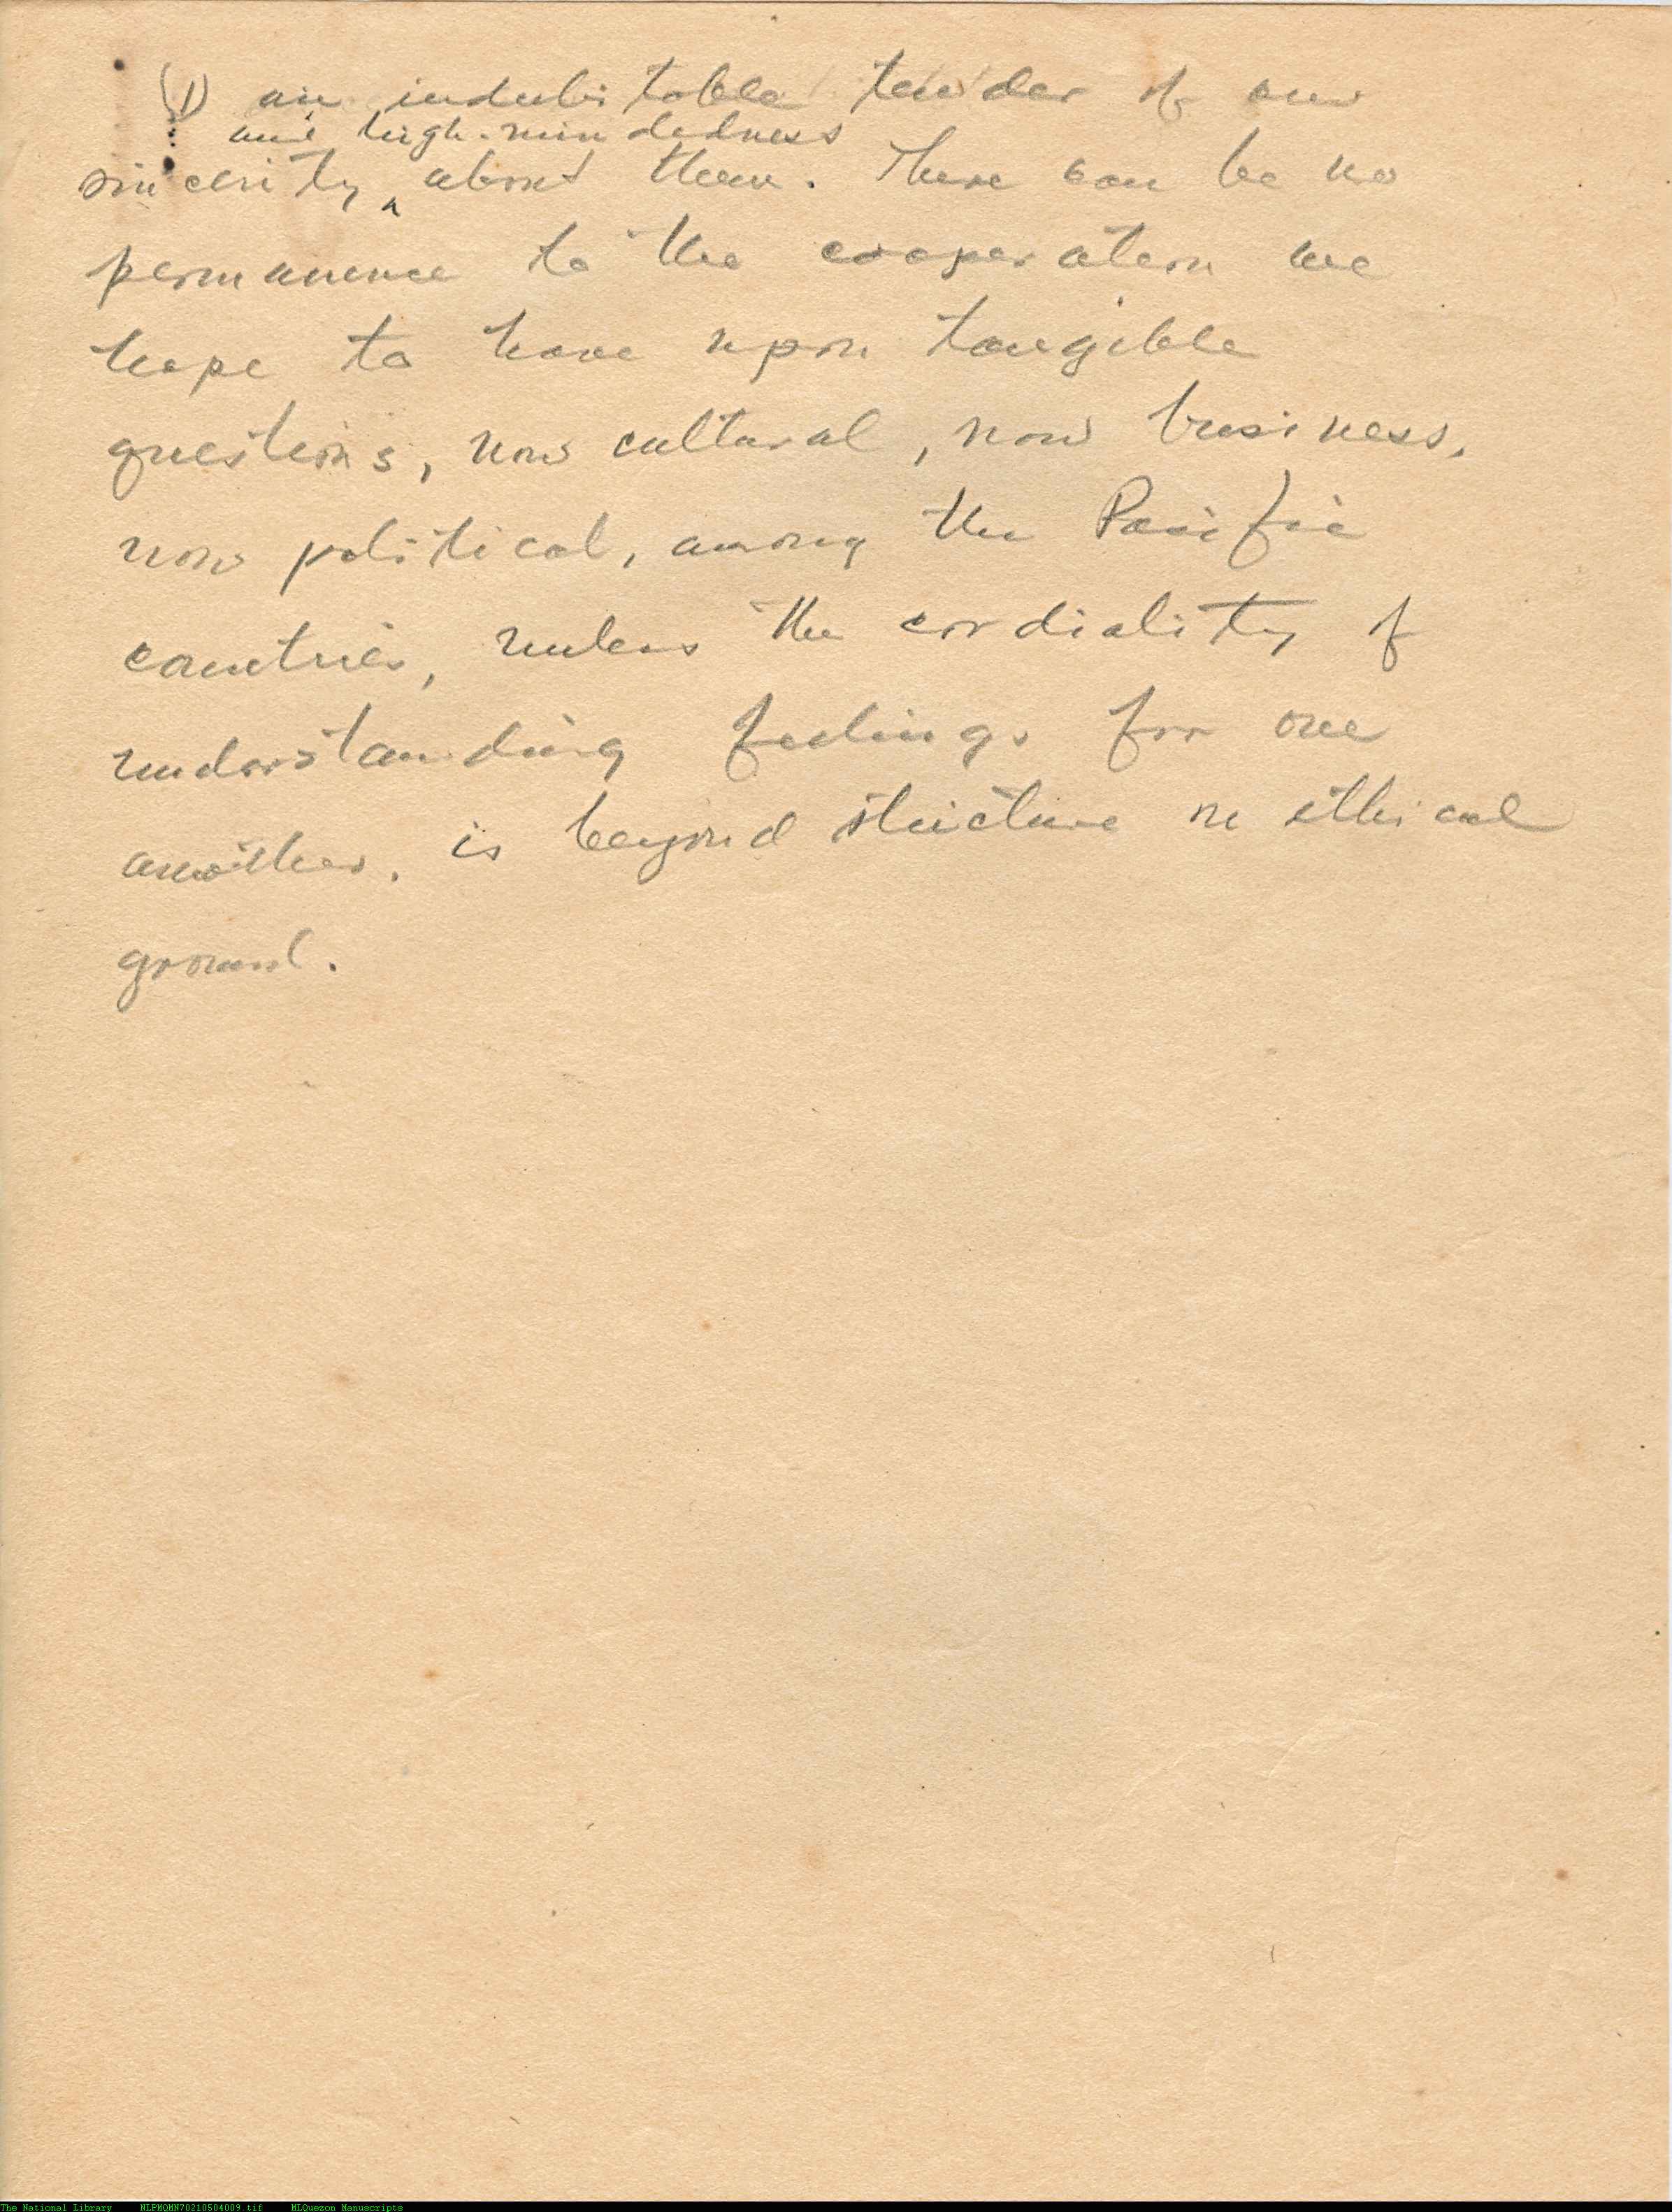 (1) an indubitable tender of our
and high-mindedness
sincerity ^ about them. There can be no
permanence to the cooperation we
hope to have upon tangible
questions, now cultural, now business,
now political, among the Pacific
countries, unless the cordiality of
understanding feelings for one
another, is beyond stricture on ethical
ground.
The National Library NLPMQMN70210504009.tif MLQuezon Manuscripts